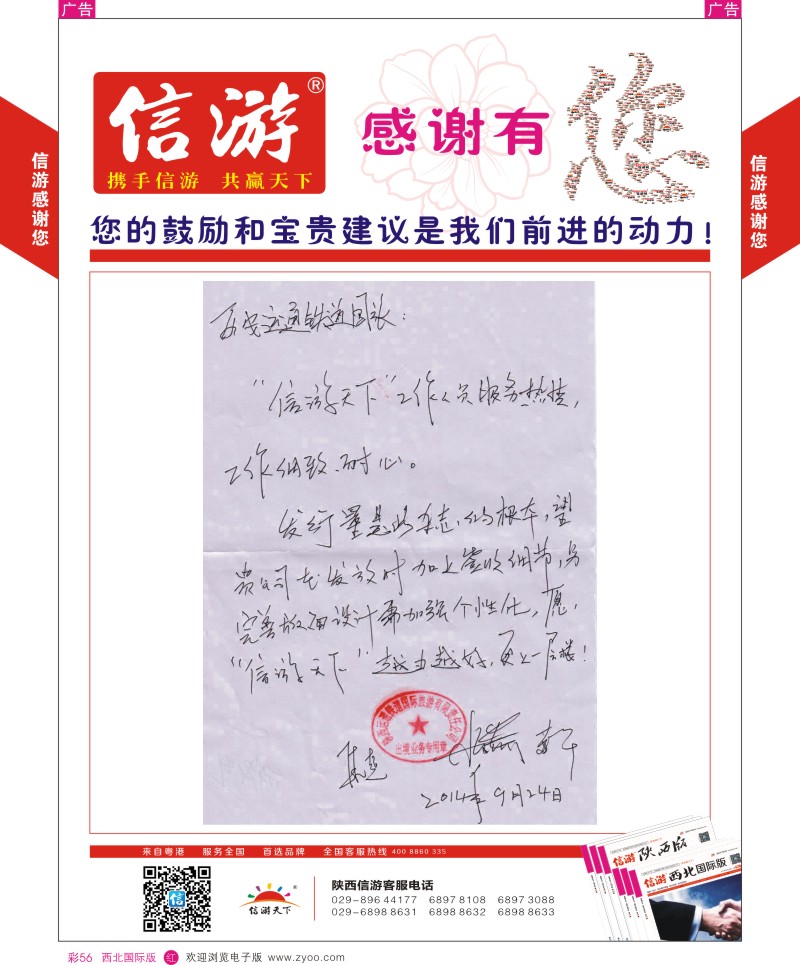 广告
广告
信游®
携手信游 共赢天下
感谢有您
信游感谢您
信游感谢您
您的鼓励和宝贵建议是我们前进的动力!
"信游天下"工作人员服务热情,
工作细致、耐心。
发行量是此杂志的根本,望
贵公司在发放时加上签收细节,另
完善版面设计需加强个性化,愿,
"信游天下"越办越好,更上一层楼!
国际旅游有限责任公司
出境业务专用章
2014年9月24日
来自粤港 服务全国 首选品牌 全国客服热线 400 8860 335
信游天下
陕西信游客服电话
029-896 44177 6897 8108 6897 3088
029-6898 8631 6898 8632 6898 8633
信游 陕西版
信游 西北国际版
彩56 西北国际版 红 欢迎浏览电子版 www.zyoo.com